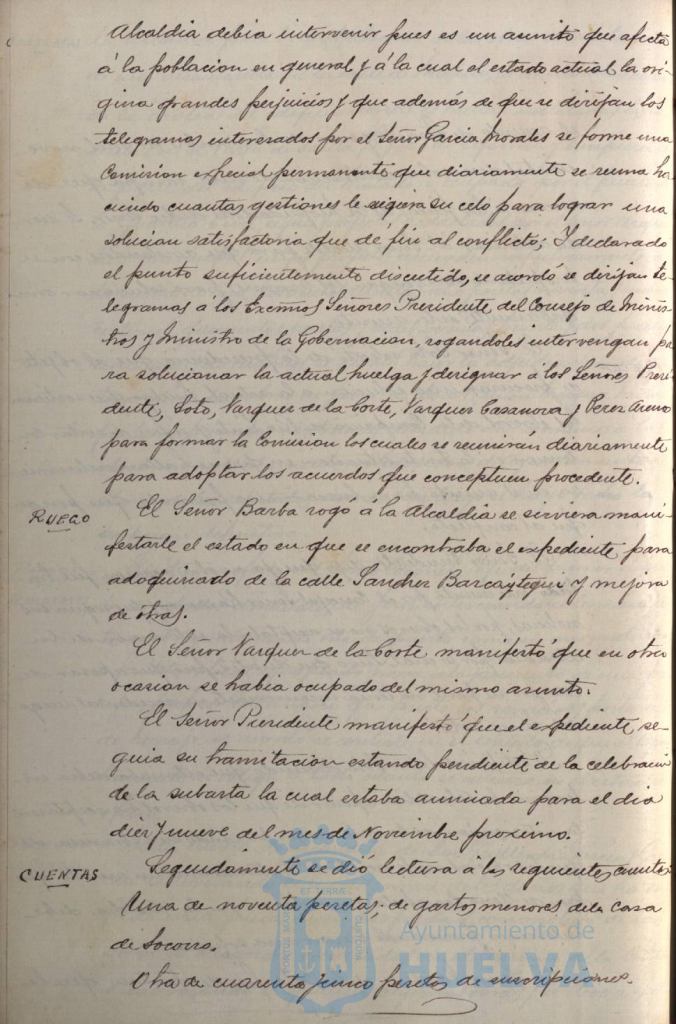 Alcaldia debia intervenir pues es un asunto que afecta
á la poblacion en general y á la cual el estado actual la ori-
gina grandes perjuicios y que además de que se dirijan los
telegramas interesados por el Señor Garcia Morales se forme una
Comision especial permanente que diariamente se reuna ha-
ciendo cuantas gestiones le sugiera su celo para lograr una
solucion satisfactoria que dé fin al conflicto; Y declarado
el punto suficientemente discutido, se acordó se dirijan te-
legramas á los Excmos Señores Presidente del Consejo de Minis-
tros y Ministro de la Gobernacion, rogandoles intervengan pa-
ra solucionar la actual huelga y designar á los Señores Presi-
dente, Soto, Vazquez de la Corte, Vazquez Casanova y Perez
para formar la Comision los cuales se reunirán diariamente
para adoptar los acuerdos que conceptuen procedente.
RUEGO
El Señor Barba rogó á la Alcaldia se sirviera mani-
festarle el estado en que se encontraba el expediente para
adoquinado de la calle Sanchez Barcaiztegui y mejora
de otras.
El Señor Vazquez de la Corte manifestó que en otra
ocasion se habia ocupado del mismo asunto.
El Señor Presidente manifestó que el expediente se-
guia su tramitacion estando pendiente de la celebracion
de la subasta la cual estaba anunciada para el dia
diez y nueve del mes de Noviembre proximo.
CUENTAS
Seguidamente se dió lectura á las siguientes cuentas:
Una de noventa pesetas, de gastos menores de la Casa
de Socorro.
Otra de cuarenta y cinco pesetas de suscripciones.
Ayuntamiento de
HUELVA